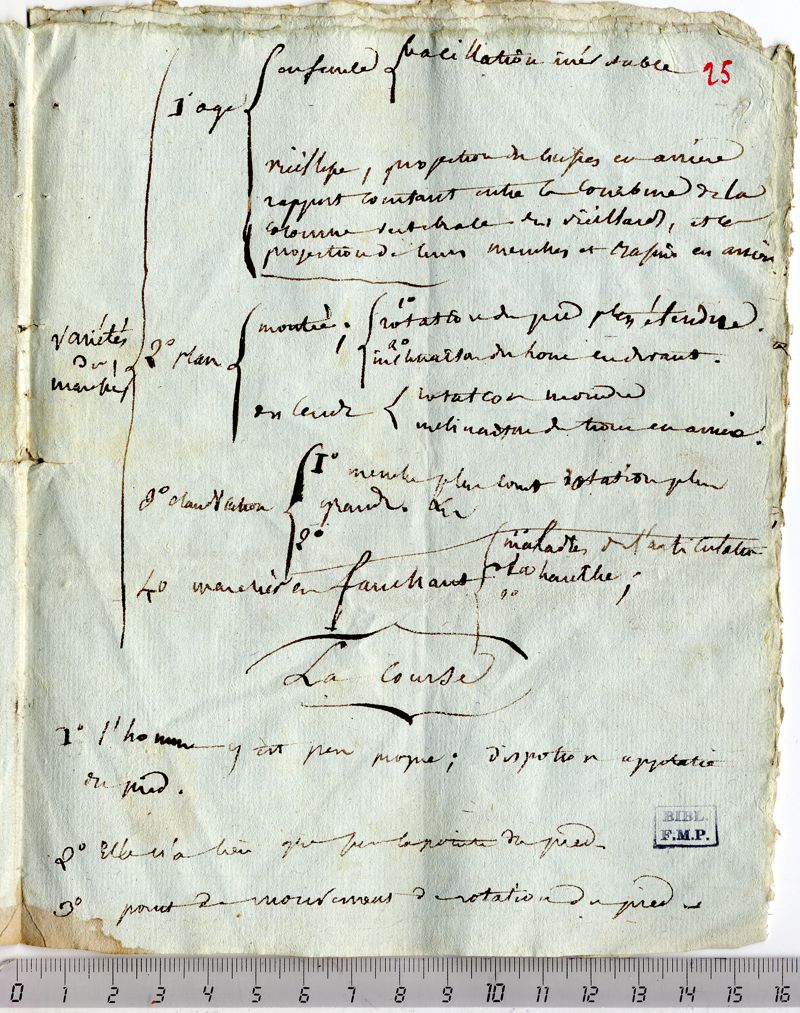 25
1° age
enfance
vacillation inévitable
vieillesse, projection du bassin en arrière
rapport constant entre la courbure de la
colonne vertébrale des vieillards, et la
projection de leurs membres et bassin en arrière
variétés
des
marches
2° plan
montée;
1°
rotation du pied plus étendue.
2°
inclinaison du tronc en devant.
descente
rotation moindre
inclinaison du tronc en arrière.
3° claudication
1° membre plus court rotation plus
grande.
2°
4° marcher en fauchant
maladies de l'articulation
la hanche;
2°
La course
1° l'homme y est peu propre; disposition applatie
du pied.
2° Elle n'a lieu que sur la pointe du pied.
3° point de mouvement de rotation du pied.
BIBL.
F.M.P.
0 1 2 3 4 5 6 7 8 9 10 11 12 13 14 15 16